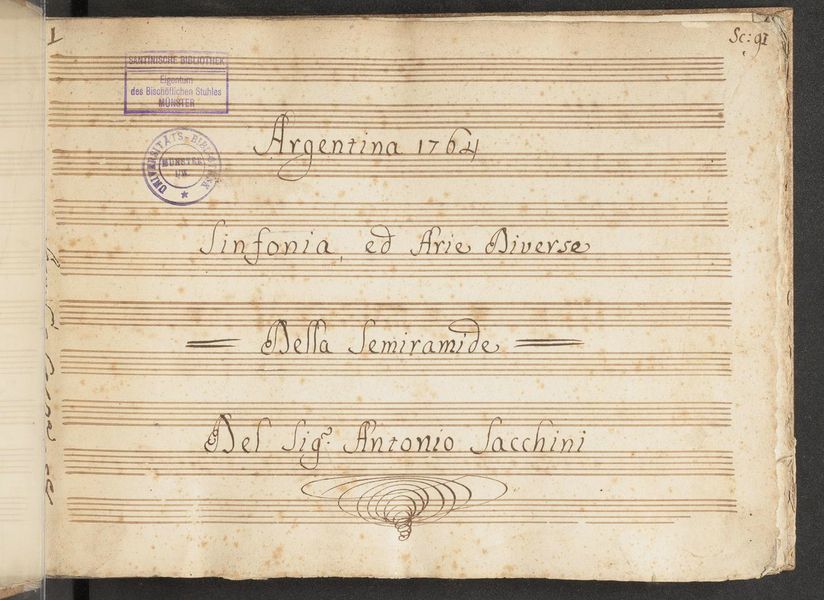 I
Sc: 91
SANTINISCHE BIBLIOTHEK
Eigentum
des Bischöflichen Stuhles
MÜNSTER
UNIVERSITÄTS-BIBLIOTHEK
MÜNSTER
i/W.
Argentina 1764
Sinfonia, ed Arie Diverse
Della Semiramide
Del Sigr. Antonio Sacchini